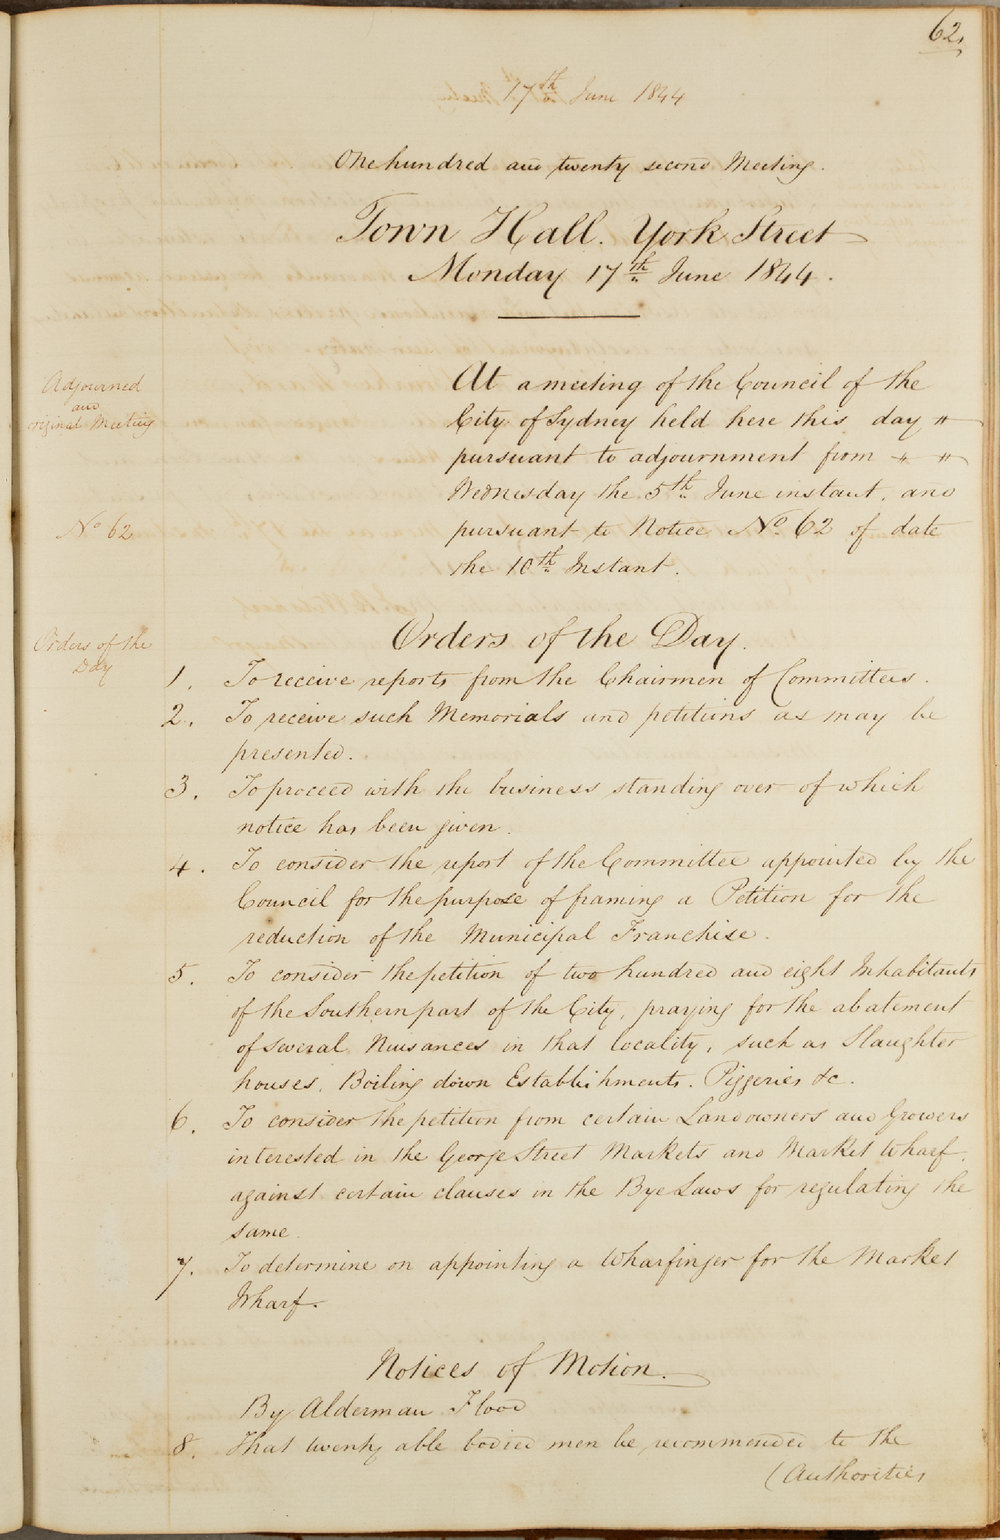 62,
17th June 1844
One hundred and twenty second Meeting.
Town Hall. York Street
Monday 17th June 1844.
Adjourned
and
original Meeting
At a meeting of the Council of the
City of Sydney held here this day "
pursuant to adjournment from " "
Wednesday the 5th June instant, and
No 62
pursuant to Notice No 62 of date
the 10th Instant.
Orders of the
Day
Orders of the Day.
1. To receive reports from the Chairmen of Committees.
2. To receive such Memorials and petitions as may be
presented.
3. To proceed with the business standing over of which
notice has been given.
4. To consider the report of the Committee appointed by the
Council for the purpose of framing a Petition for the
reduction of the Municipal Franchise.
5. To consider the petition of two hundred and eight Inhabitants
of the Southern part of the City, praying for the abatement
of several Nuisances in that locality, such as Slaughter
houses, Boiling down Establishments. Piggeries &c.
6. To consider the petition from certain Landowners and Growers
interested in the George Street Markets and Market Wharf,
against certain clauses in the Bye Laws for regulating the
same.
7. To determine on appointing a Wharfinger for the Market
Wharf.
Notices of Motion.
By Alderman Flood
8. That twenty able bodied men be recommended to the
(Authorities